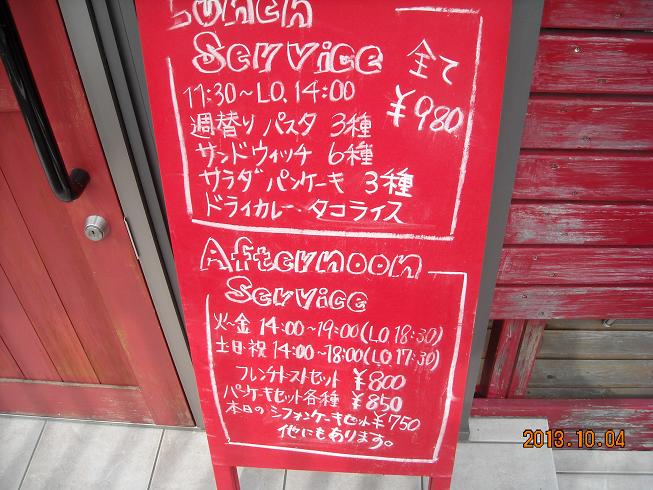 Lunch
Service 全て
11:30~LO.14:00 ¥980
週替り パスタ 3種
サンドウィッチ 6種
サラダパンケーキ 3種
ドライカレー・タコライス
Afternoon
Service
火~金 14:00~19:00(LO.18:30)
土・日・祝 14:00~18:00(LO.17:30)
フレンチトーストセット ¥800
パンケーキセット各種 ¥850
本日の シフォンケーキセット ¥750
他にもあります。
2013.10.04